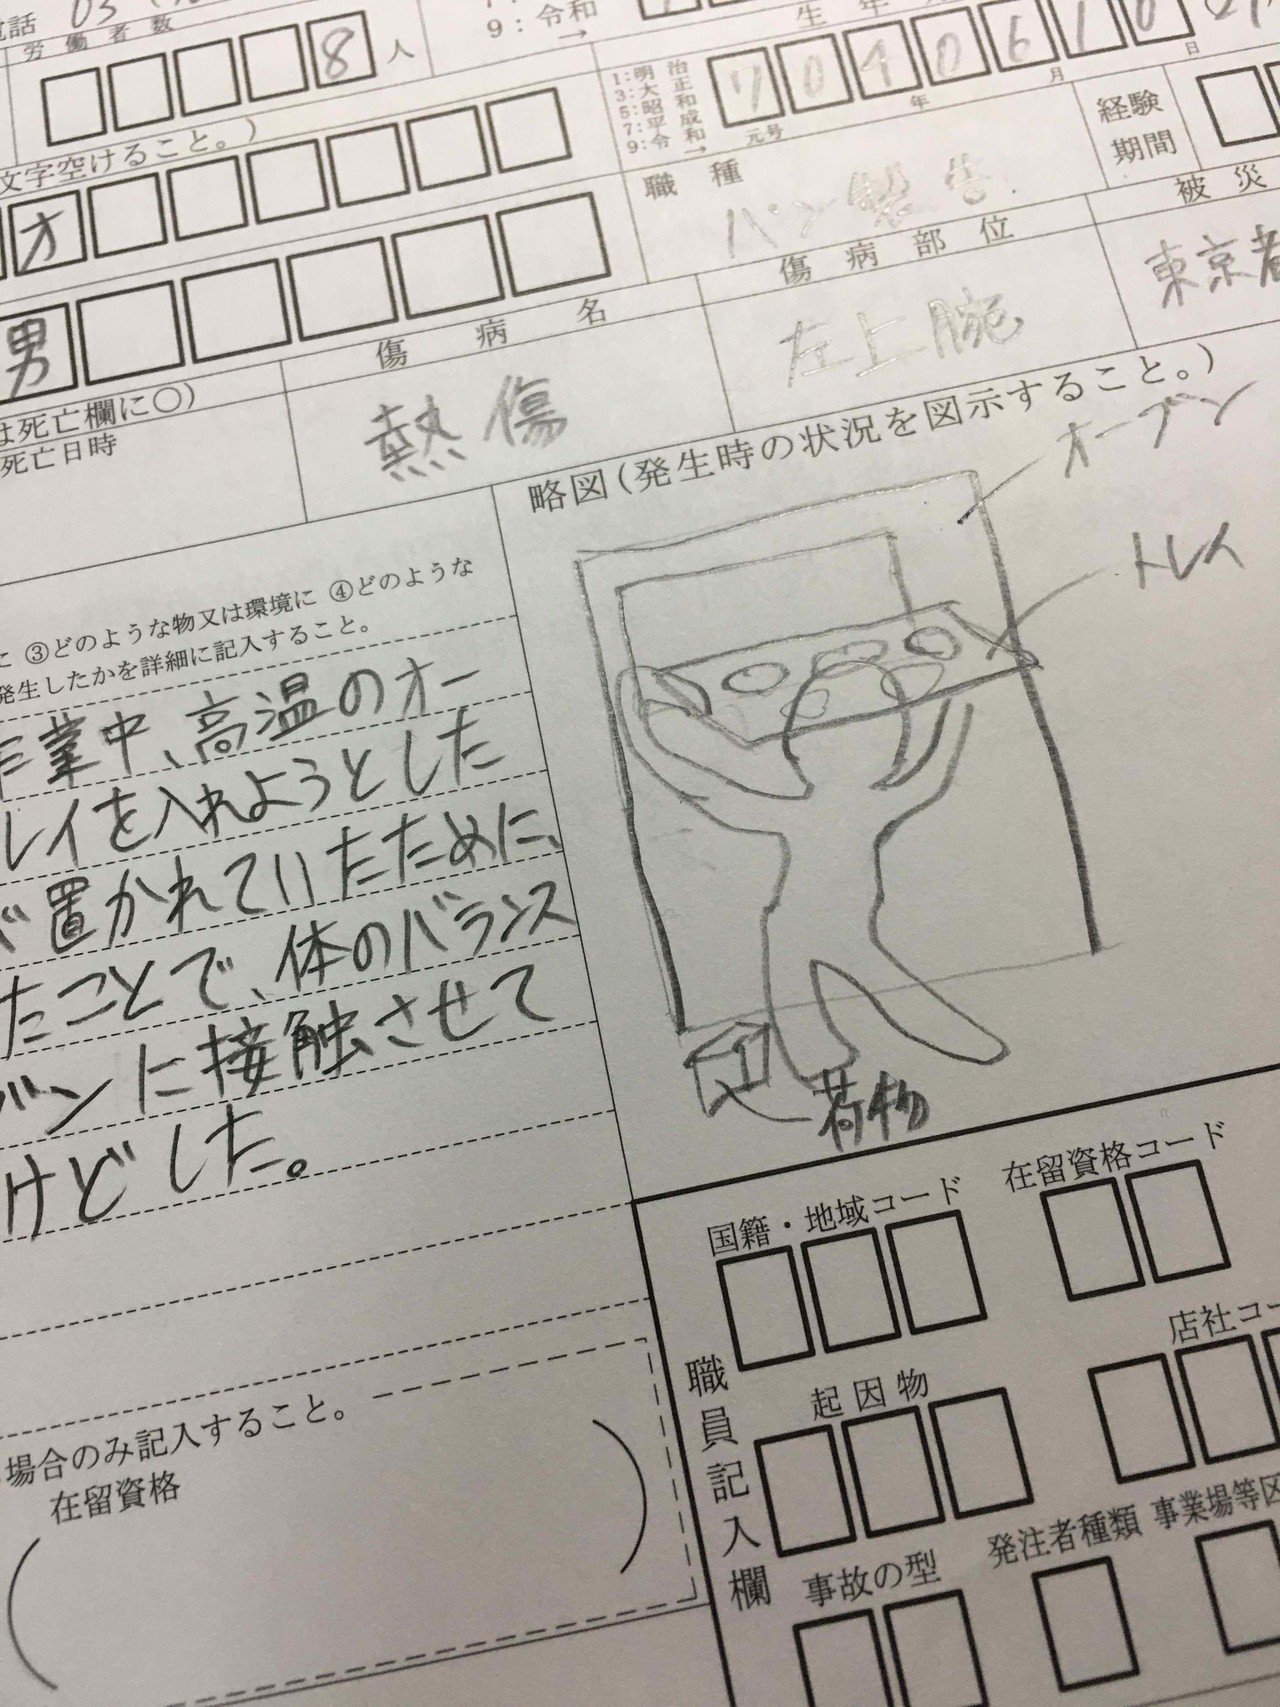 電話 03
労働者数
8 人
9：令和
→
生年
1：明治
3：大正
5：昭和
7：平成
9：令和→
7 0 4 0 6 1 0
元号 年 月 日
文字空けること。)
オ
職種
パン製造
経験
期間
男
傷病名
熱傷
傷病部位
左上腕
被災
東京都
は死亡欄に○)
死亡日時
略図(発生時の状況を図示すること。)
オーブン
トレイ
荷物
に ③どのような物又は環境に ④どのような
発生したかを詳細に記入すること。
作業中、高温のオー
レイを入れようとした
が置かれていたために、
たことで、体のバランス
ブンに接触させて
けどした。
場合のみ記入すること。
在留資格
職員記入欄
国籍・地域コード
在留資格コード
起因物
店社コー
事故の型
発注者種類
事業場等区